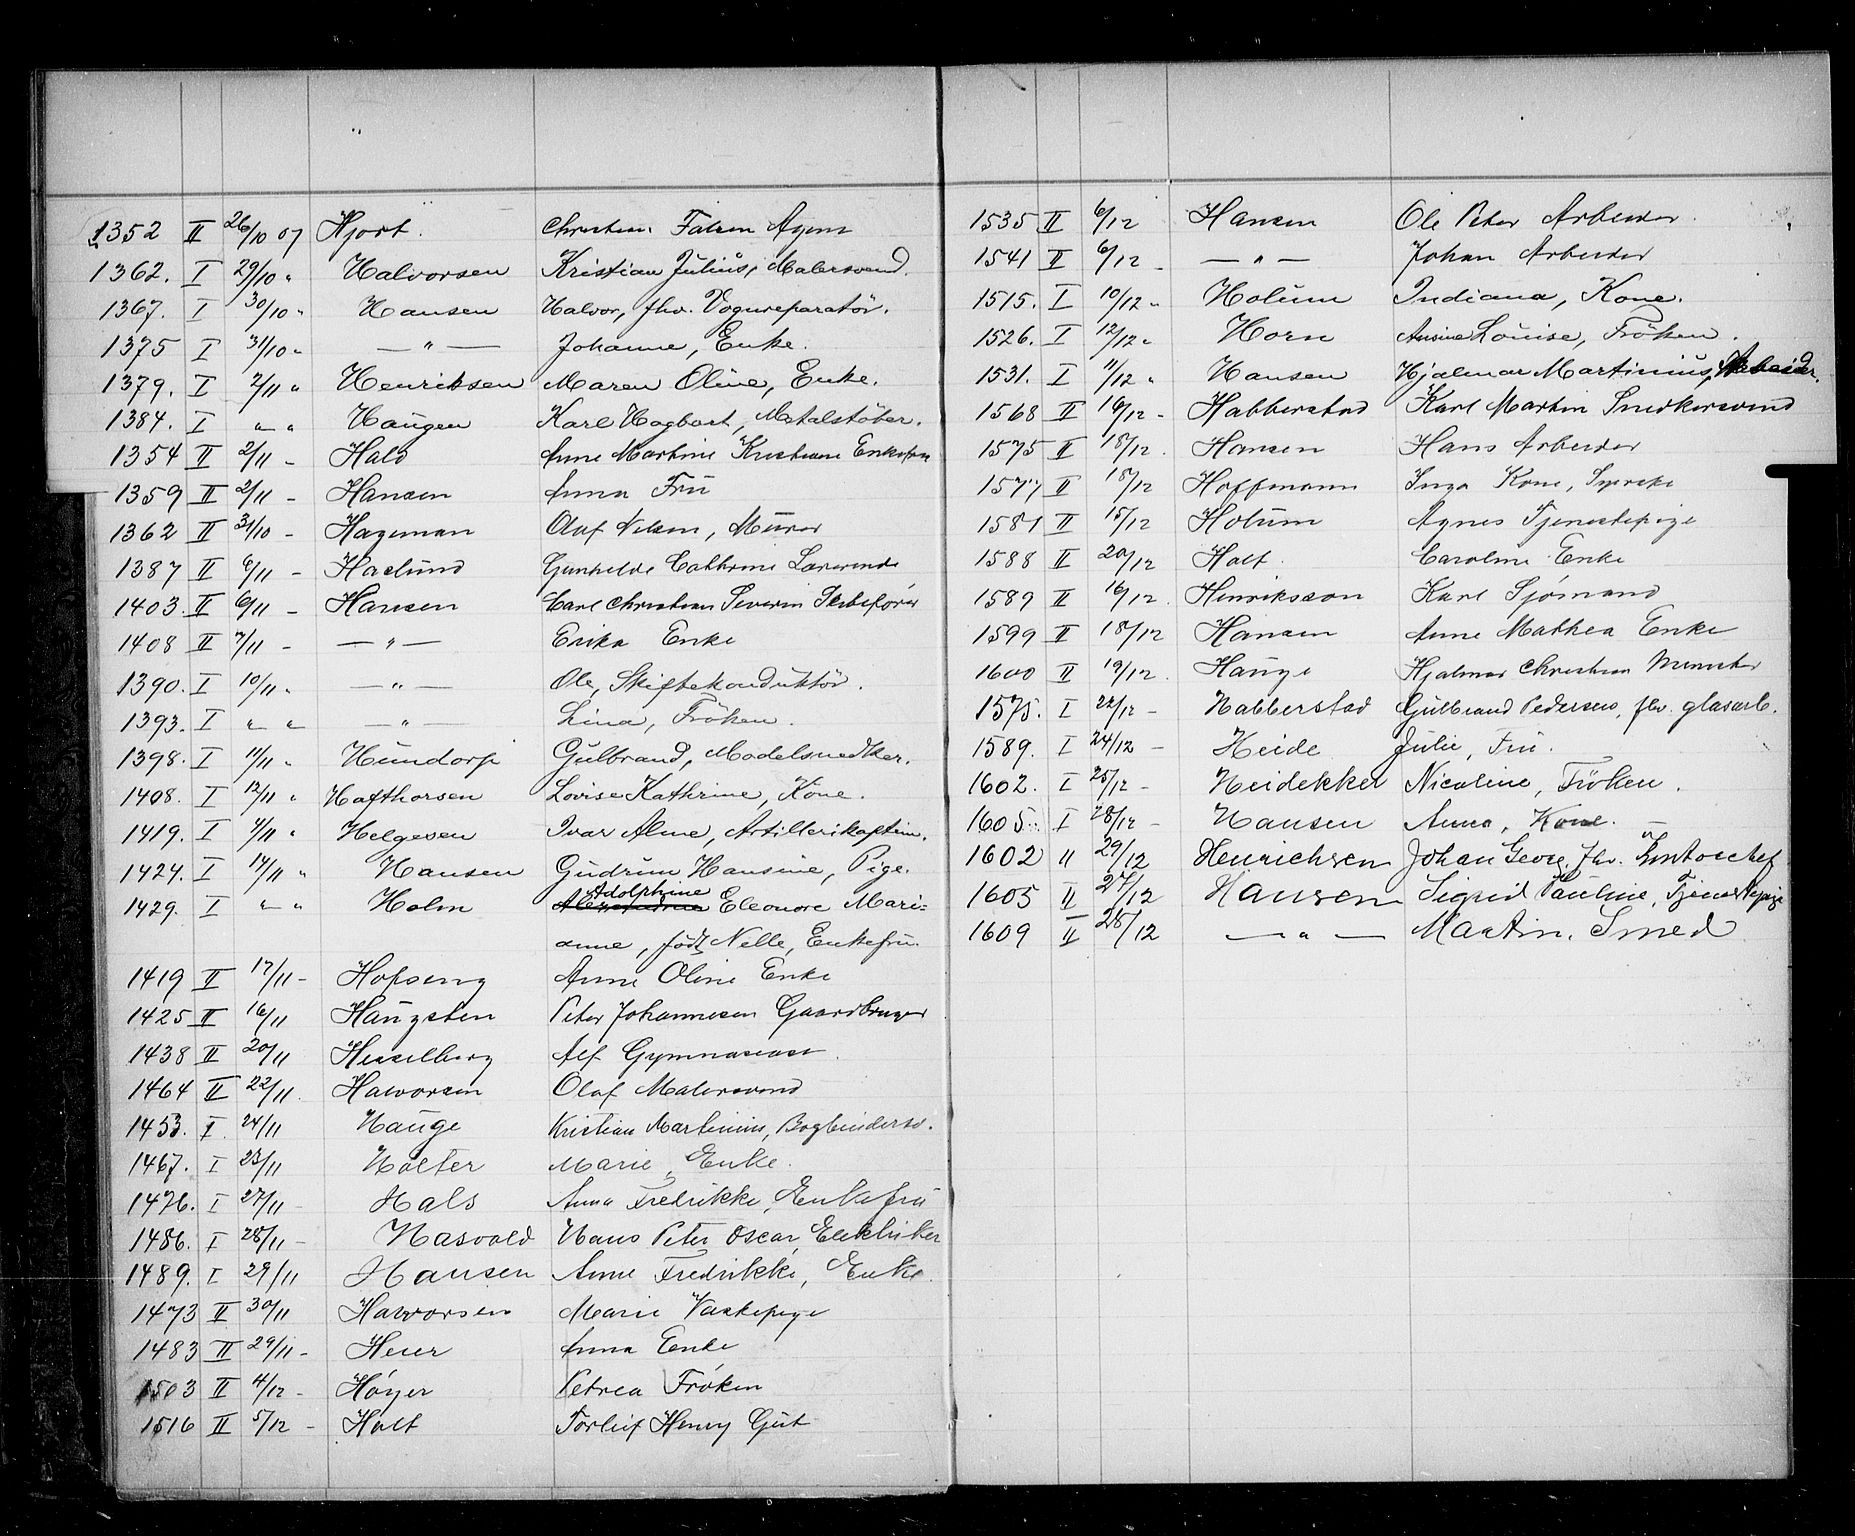 1352 II 26/10 07 Hjort. Christian Falsen Agent
1362. I 29/10 " Halvorsen Kristian Julius, Malersvend.
1367. I 30/10 " Hansen Halvor, fhv. Vognreparatör.
1375 I 31/10 " — " — Johanne, Enke.
1379. I 2/11 " Henriksen Maren Oline, Enke.
1384. I " " Haugen Karl Hagbart, Metalstöber.
1354 II 2/11 - Hals Anne Martine Kristiane Enkefru
1359 II 2/11 - Hansen Anna Fru
1362 II 31/10 - Hageman Olaf Nilsen, Murer
1387 II 6/11 - Haslund Gunhilde Cathrine Lærerinde
1403. II 6/11 - Hansen Carl Christian Severin Skibsfører
1408 II 7/11 - — " — Erika Enke
1390. I 10/11 " — " — Ole, Skiftekonduktör.
1393. I " " — " — Lina, Fröken.
1398. I 11/11 " Hundorp Gulbrand, Modelsnedker.
1408. I 12/11 " Hafthorsen Lovise Kathrine, Kone.
1419. I 7/11 " Helgesen Ivar Alme, Artillerikaptein.
1424. I 14/11 " Hansen Gudrun Hansine, Pige.
Adolphine
1429. I " " Holm Alexandrea Eleonore Mari=
anne, født Nelle, Enkefru.
1419 II 17/11 - Hofseng Anne Oline Enke
1425 II 16/11 Haugsten Peter Johannesen Gaardbruger
1438 II 20/11 Hesselberg Alf Gymnasiast
1464 II 22/11. Halvorsen Olaf Malersvend
1453. I. 24/11 Hauge Kristian Martinius, Bogbindersv.
1467. I 23/11 Holter Marie, Enke.
1476. I 27/11 - Hals Anna Fredrikke, Enkefru
1486. I 28/11 - Hasvold Hans Peter Oscar, Elektriker
1489. I 29/11 Hansen Anne Fredrikke, Enke.
1473 II 30/11 Halvorsen Marie Vaskepige
1483 II 29/11 - Heier Anna Enke
1503 II 4/12 - Høyer Petrea Frøken
1516 II 5/12 - Holt Torleif Henry Gut
1535 II 6/12 Hansen Ole Peter Arbeider.
1541 II 6/12 - — " — Johan Arbeider
1515. I 10/12 " Holum Indiana, Kone.
1526. I 12/12 " Horn Ansine Louise, Fröken.
1531. I 11/12 " Hansen Hjalmar Martinius, Arbeider.
1568 II 16/12 - Habberstad Karl Martin Snedkersvend
1575 II 18/12. Hansen Hans Arbeider
1577 II 18/12 Hoffmann Inga Kone,
1581 II 15/12 Holum Agnes Tjenestepige
1588 II 20/12 Holt. Caroline Enke
1589 II 16/12. Henriksson Karl Sjømand
1599 II 18/12 Hansen Anne Mathea Enke
1600 II 19/12. Hauge Hjalmar Christian
1575. I 22/12 - Habberstad Gulbrand Pedersen, fhv. glasarb.
1589. I 24/12 - Heide Julie, Fru.
1602. I 25/12 - Heidekker Nicoline, Fröken.
1605. I 28/12 - Hansen Anna, Kone. —
1602 II 29/12 Henrichsen Johan Georg, fhv. Kontorchef
1605 II 27/12 Hansen Sigrid Pauline, Tjenestepige
1609 II 28/12 — " — Martin, Smed